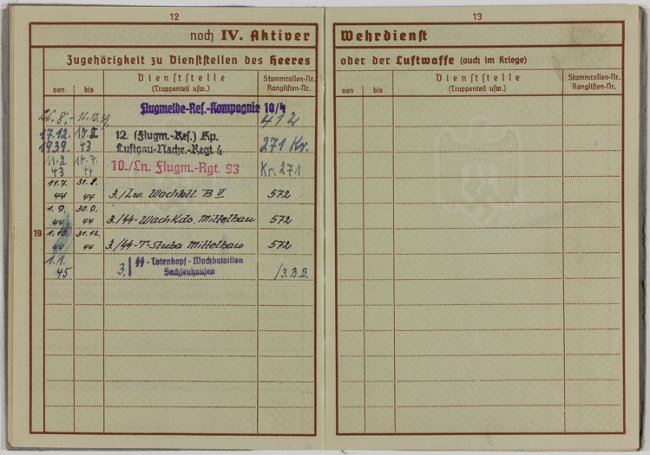 12
noch IV. Aktiver
Zugehörigkeit zu Dienststellen des Heeres
von bis Dienststelle (Truppenteil usw.) Stammrollen-Nr. Ranglisten-Nr.
26.8. - 16.12.39 Flugmelde-Res.-Kompagnie 10/4 412
17.12. 1939. 17.II. 43 12. (Flugm.-Res.) Kp. Luftgau-Nachr.-Regt 4 271 Kr.
11.2. 43 14.7. 44 10./Ln. Flugm.-Rgt. 93 Kr. 271
11.7. 44 31.8. 44 3./Lw. Wachbtl. B II 572
1.9. 44 30.9. 44 3./SS-WachKdo. Mittelbau 572
19 1.10. 44 31.12. 44 3./SS-T-Stuba Mittelbau 572
1.1. 45 3./ SS-Totenkopf-Wachbataillon Sachsenhausen /3.B.B.
13
Wehrdienst
oder der Luftwaffe (auch im Kriege)
von bis Dienststelle (Truppenteil usw.) Stammrollen-Nr. Ranglisten-Nr.